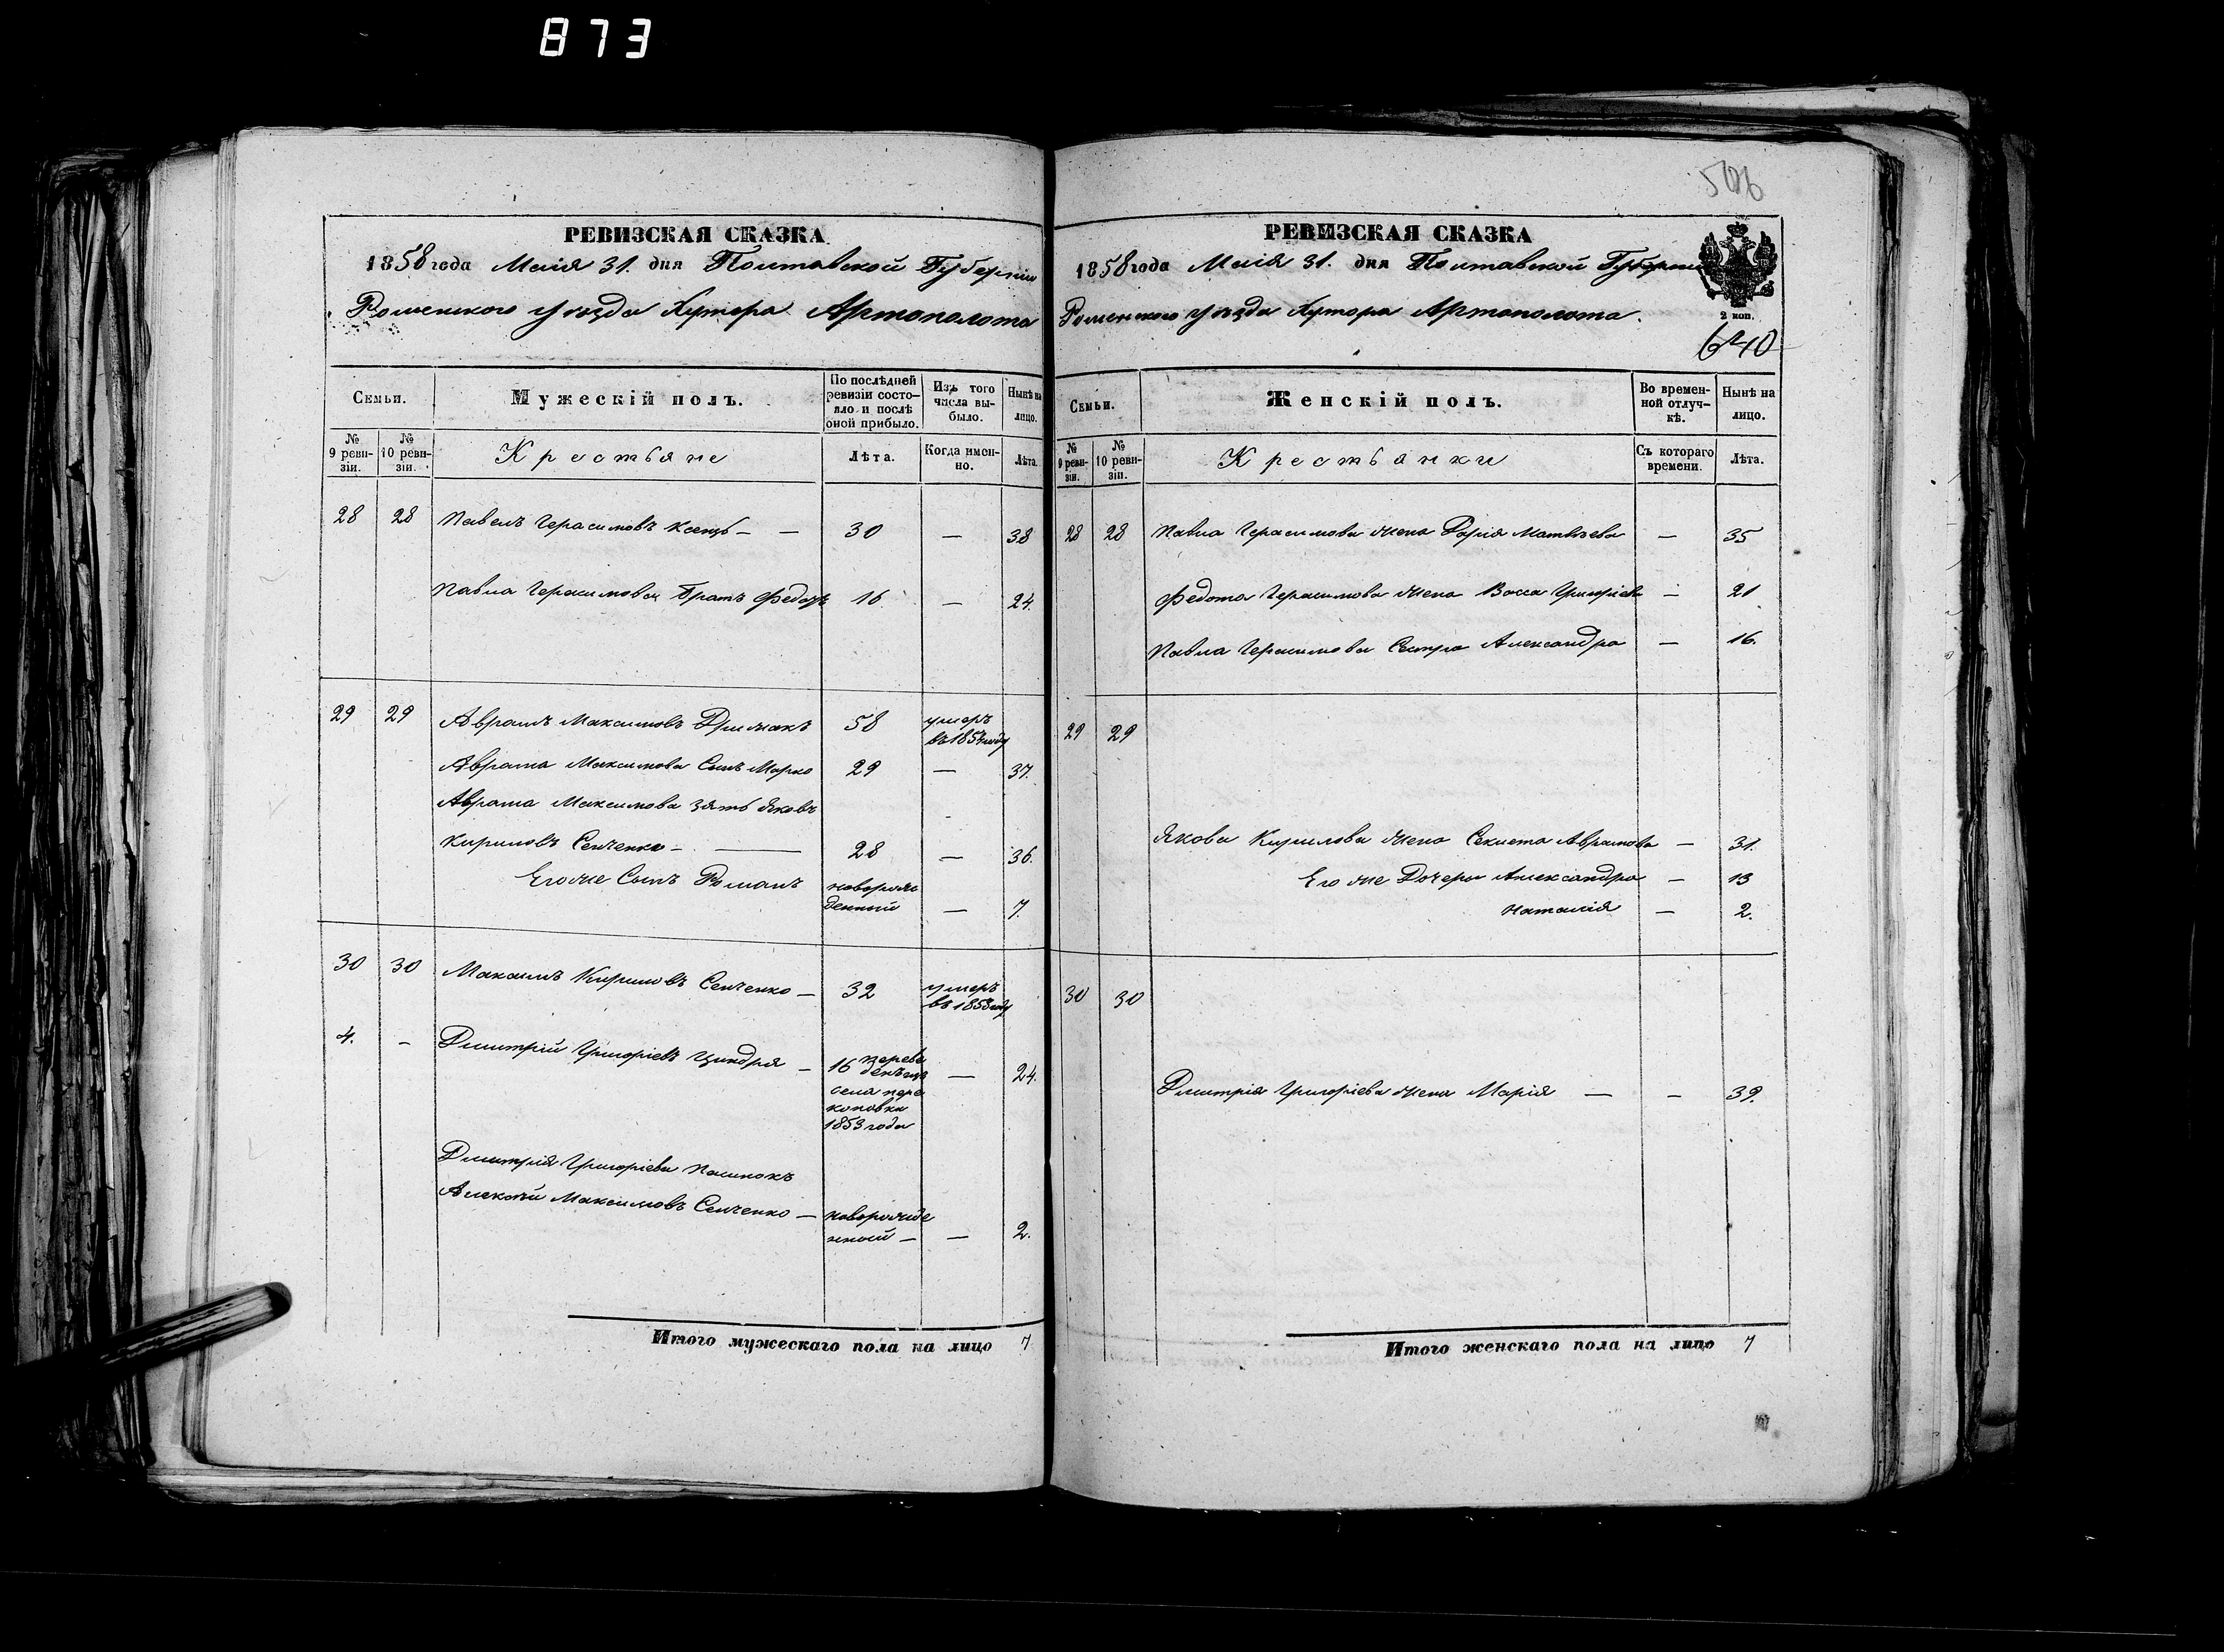 873
РЕВИЗСКАЯ СКАЗКА
1858 года Маія 31. дня Полтавской Губерніи
Роменскаго уѣзда Хутора Артополота
Семьи.
Мужескій полъ.
По послѣдней ревизіи состояло и послѣ оной прибыло.
Изъ того числа выбыло.
Нынѣ на лицо.
№ 9 ревизіи.
№ 10 ревизіи.
Крестьяне
Лѣта.
Когда именно.
Лѣта.
28 28 Павелъ Герасимовъ Ксенз – – 30 — 38
Павла Герасимова Братъ Федотъ 16. — 24.
29 29 Аврамъ Максимовъ 58 умеръ
въ 185 году
Аврама Максимова Сынъ Марко 29 — 37.
Аврама Максимова зять Яковъ
Кириловъ Сенченко – — 28 — 36.
Егоже Сынъ Романъ новорож
денный — 7.
30 30 Максимъ Кириловъ Сенченко – 32 умеръ
въ 1853 году
4. – Дмитрій Григоріевъ Циндря – 16 переве
денъ изъ — 24.
села пере
коповки
1853 года
Дмитрія Григоріева пасинокъ
Алексѣй Максимовъ Сенченко – новорожде
нный – — 2.
Итого мужескаго пола на лицо 7
РЕВИЗСКАЯ СКАЗКА
1858 года Маія 31. дня Полтавской Губерніи
Роменскаго уѣзда Хутора Артополота.
2 коп.
Семьи.
Женскій полъ.
Во временной отлучкѣ.
Нынѣ на лицо.
№ 9 ревизіи.
№ 10 ревизіи.
Крестьянки
Съ котораго времени.
Лѣта.
28 28 Павла Герасимова жена Дарія Матвѣева — 35
Федота Герасимова жена Васса Григоріева — 21
Павла Герасимова Сестра Александра — 16.
29 29
Якова Кирилова жена Секлета Аврамова – 31.
Его же Дочери Александра – 13
Наталія — 2.
30 30
Дмитрія Григоріева жена Марія — – 39.
Итого женскаго пола на лицо 7